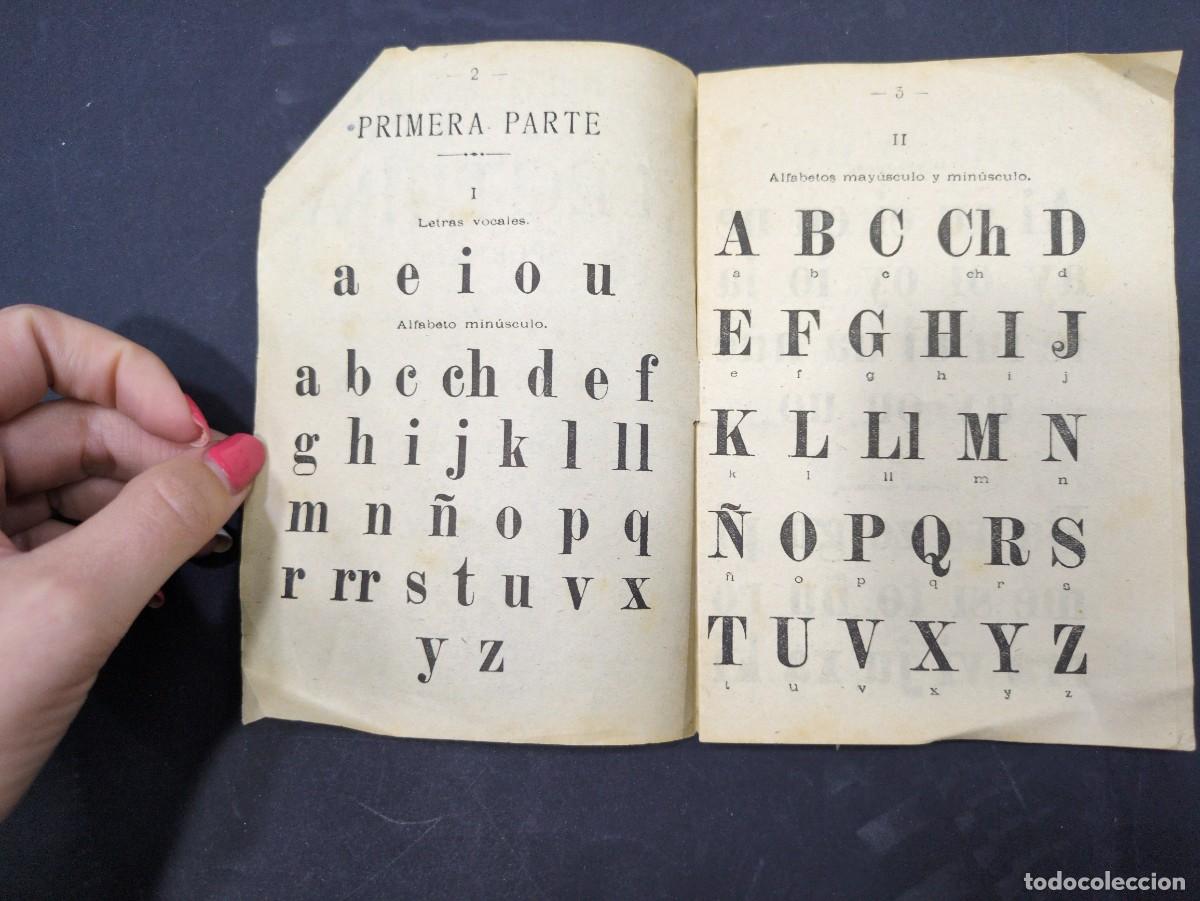 — 2 —
PRIMERA PARTE
I
Letras vocales.
a e i o u
Alfabeto minúsculo.
a b c ch d e f
g h i j k l ll
m n ñ o p q
r rr s t u v x
y z
— 3 —
II
Alfabetos mayúsculo y minúsculo.
A B C Ch D
a b c ch d
E F G H I J
e f g h i j
K L Ll M N
k l ll m n
Ñ O P Q R S
ñ o p q r s
T U V X Y Z
t u v x y z
todocoleccion